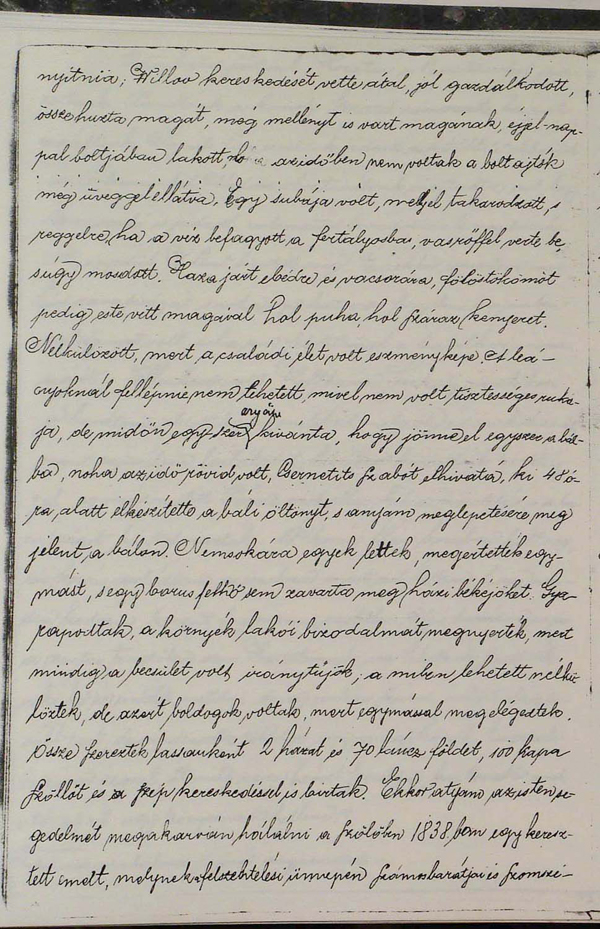 nyitnia; Willov kereskedését vette átal, jól gazdálkodott,
össze huzta magát, még mellényt is vart magának, éjjel-nap-
pal boltjában lakott az időben nem voltak a bolt ajtók
még üveggel ellátva. Egy subája volt, melljel takarodzott, s
reggelre, ha a viz befagyott a fertályosba, vasrőffel verte be,
s úgy mosdott. Haza járt ebédre és vacsorára, fölöstökömöt
pedig este vitt magával hol puha, hol száraz kenyeret.
Nélkülözott, mert a családi élet volt eszményképe. A leá-
nyoknál fellépnie nem lehetett, mivel nem volt tisztességes ruhá-
ja, de midőn egyszer anyám kivánta, hogy jönne el egyszer a bál-
ba, noha az idő rövid volt, Csernetits szabót elhivatá, ki 48 ó-
ra alatt elkészítette a báli öltönyt, s anyám meglepetésére meg
jelent a bálon. Nemsokára egyek lettek, megértették egy-
mást, s egy borus felhő sem zavarta meg házi békéjöket. Gya-
rapodtak, a környék lakói bizodalmát megnyerték, mert
mindig a becsület volt iránytűjök; a miben lehetett nélkü-
löztek, de azért boldogok voltak, mert egymással megelégedtek.
Össze szereztek lassanként 2 házat és 70 láncz földet, 100 kapa
szöllőt és a szép kereskedéssel is birtak. Ekkor atyám az isten se-
gedelmét megakarván hálálni a szőlőbn 1838 ban egy keresz-
tett emelt, melynek felszentelési ünnepén számos barátjai és szomszé-